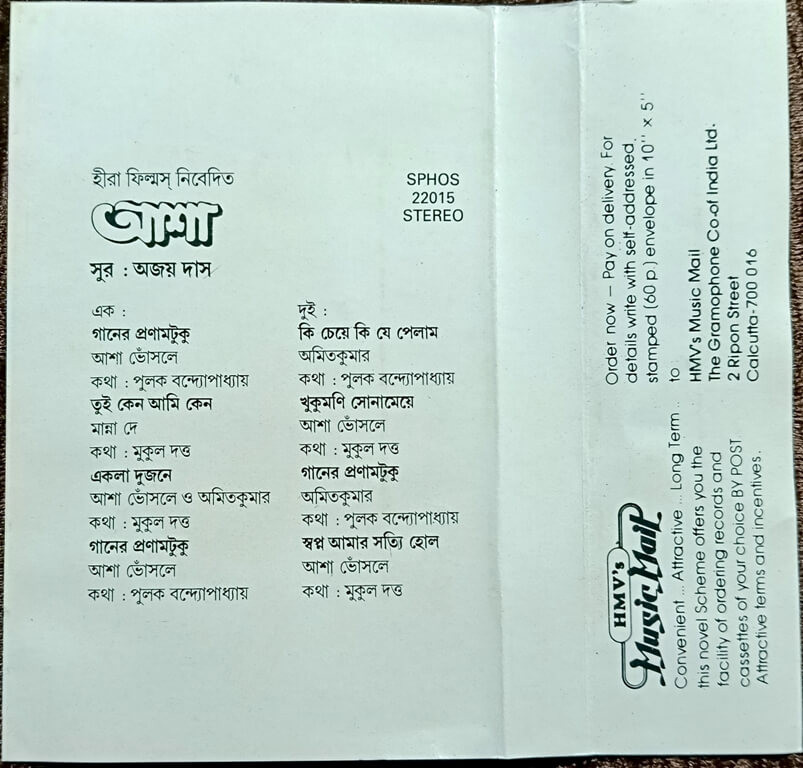 হীরা ফিল্মস্ নিবেদিত
আশা
সুর : অজয় দাস
SPHOS
22015
STEREO
এক :
গানের প্রণামটুকু
আশা ভোঁসলে
কথা : পুলক বন্দ্যোপাধ্যায়
তুই কেন আমি কেন
মান্না দে
কথা : মুকুল দত্ত
একলা দুজনে
আশা ভোঁসলে ও অমিতকুমার
কথা : মুকুল দত্ত
গানের প্রণামটুকু
আশা ভোঁসলে
কথা : পুলক বন্দ্যোপাধ্যায়
দুই :
কি চেয়ে কি যে পেলাম
অমিতকুমার
কথা : পুলক বন্দ্যোপাধ্যায়
খুকুমণি সোনামেয়ে
আশা ভোঁসলে
কথা : মুকুল দত্ত
গানের প্রণামটুকু
অমিতকুমার
কথা : পুলক বন্দ্যোপাধ্যায়
স্বপ্ন আমার সত্যি হোল
আশা ভোঁসলে
কথা : মুকুল দত্ত
HMV's
Music Mail
Convenient ... Attractive ... Long Term ..
this novel Scheme offers you the
facility of ordering records and
cassettes of your choice BY POST
Attractive terms and incentives.
Order now – Pay on delivery. For
details write with self-addressed,
stamped (60 p.) envelope in 10" x 5"
to
HMV's Music Mail
The Gramophone Co. of India Ltd.
2 Ripon Street
Calcutta-700 016